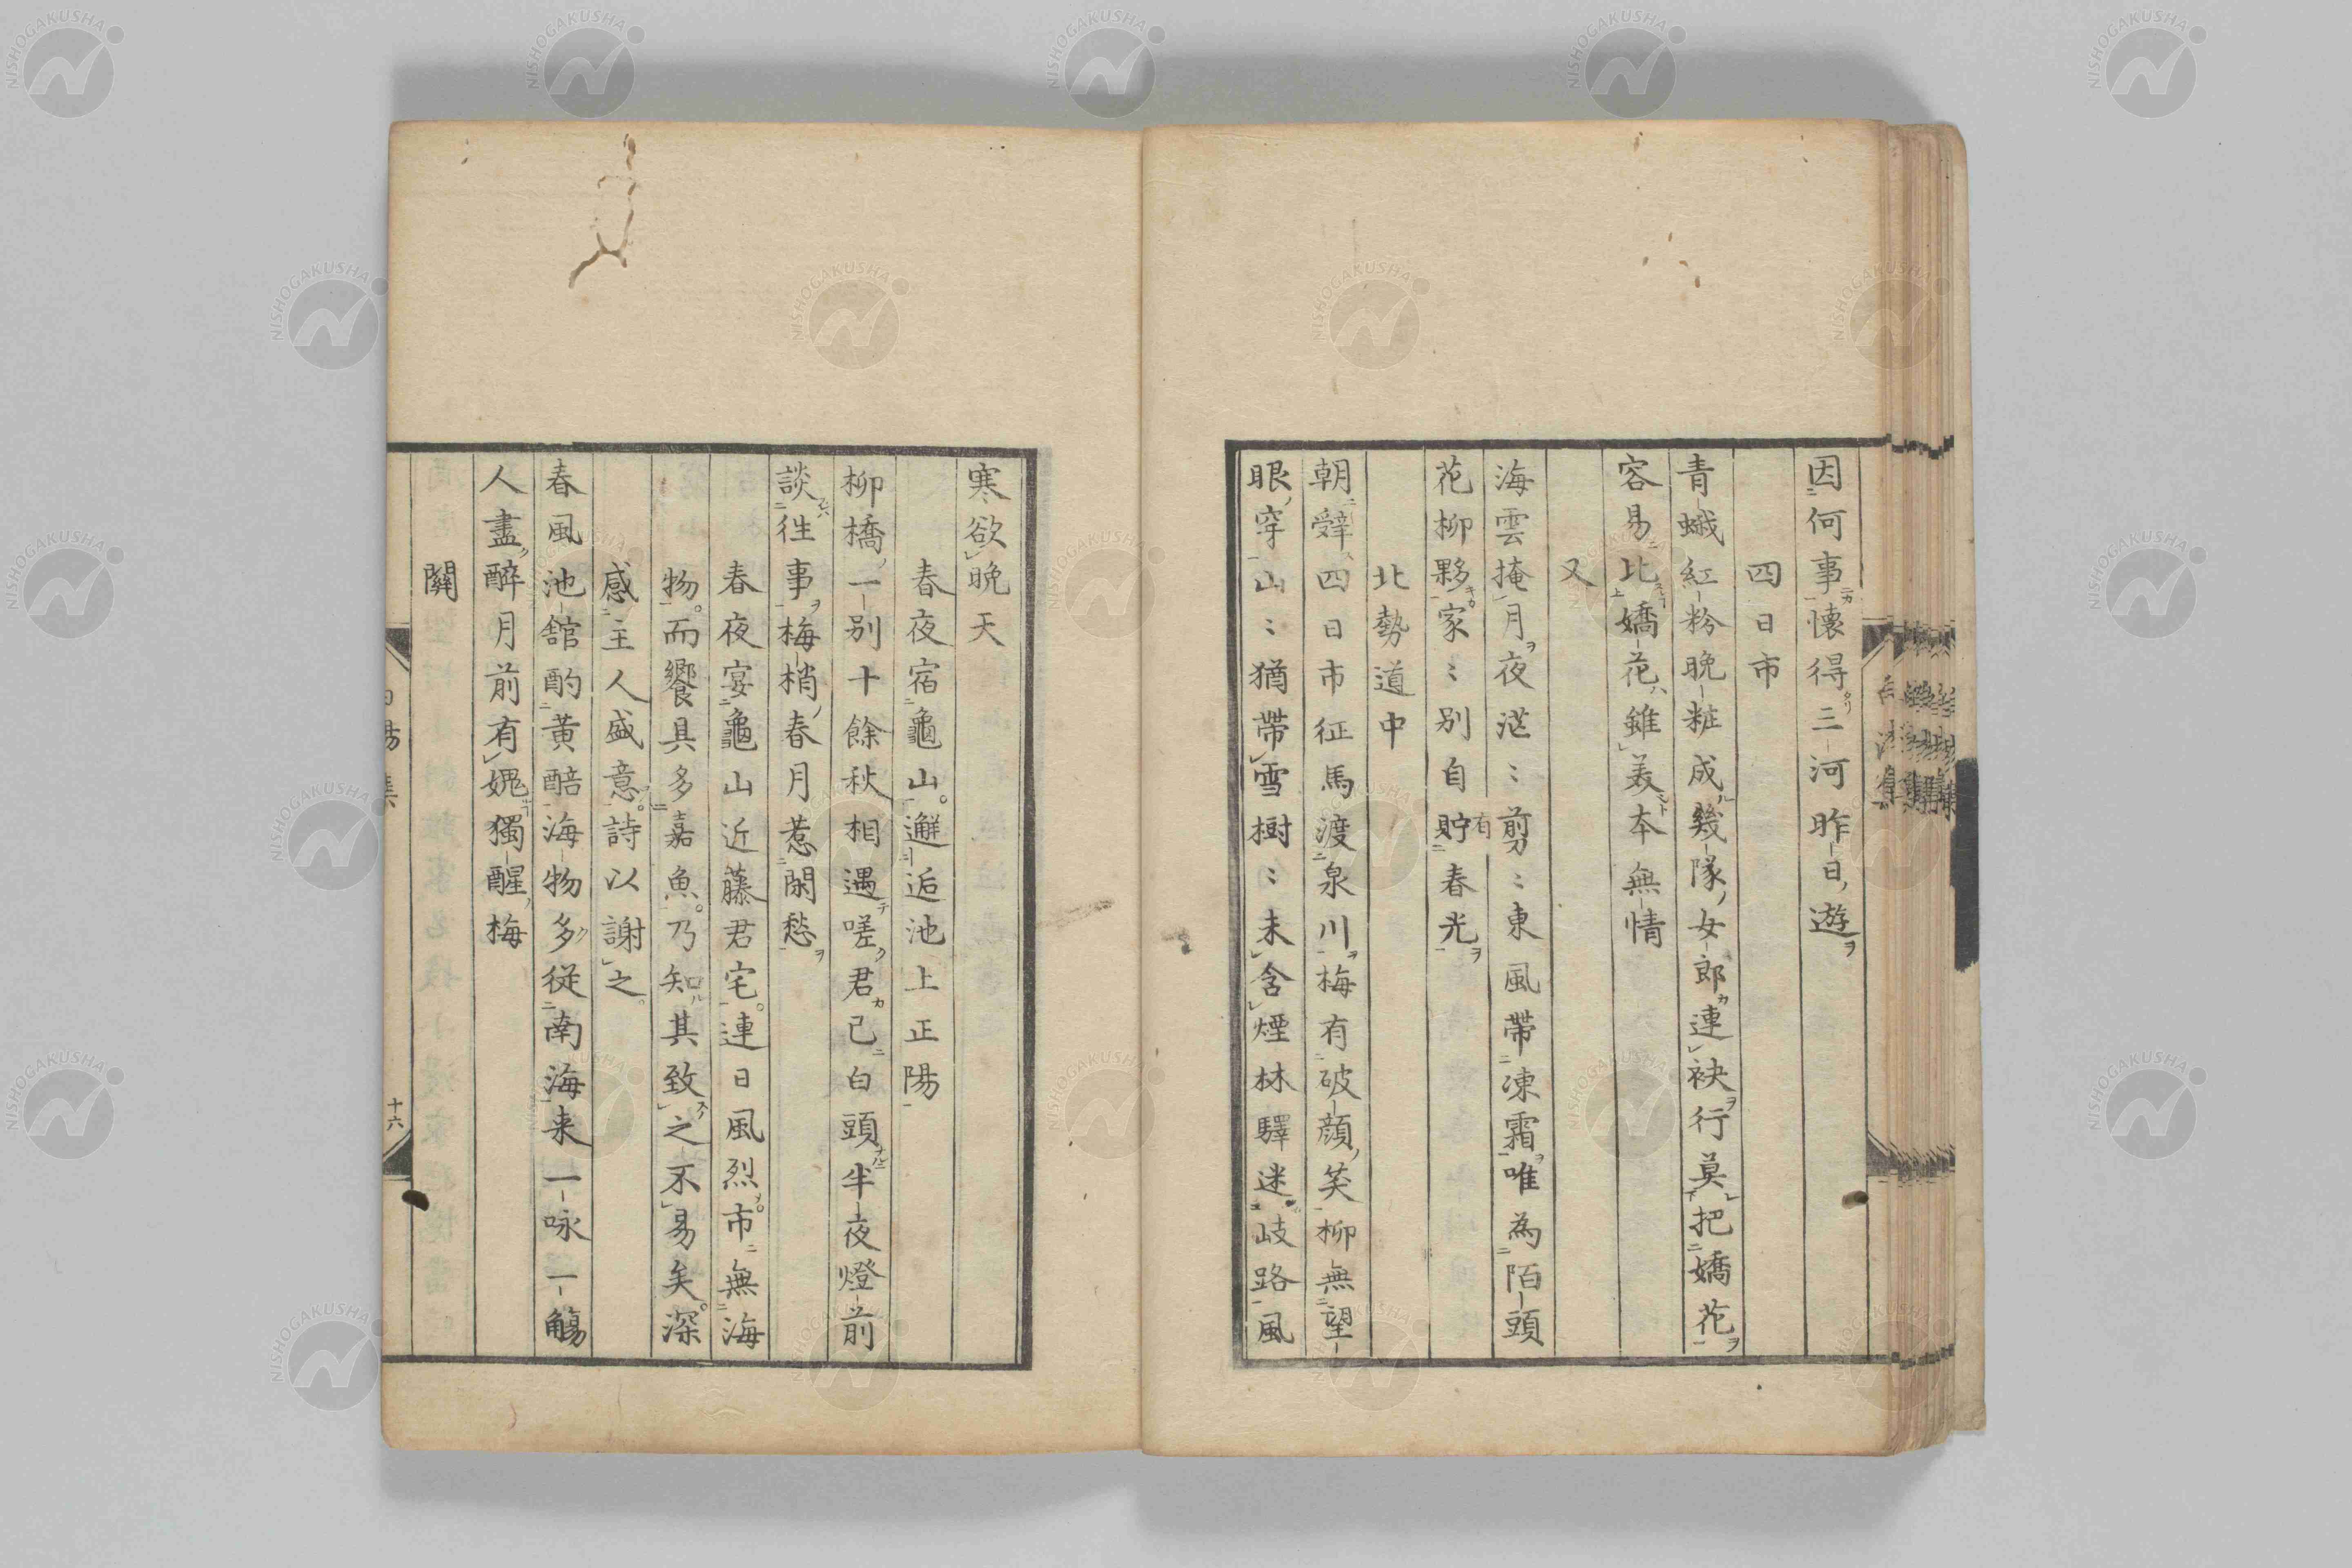 因何事懷得三河昨日遊
四日市
青蛾紅粉晚粧成幾隊女郎連袂行莫把嬌花
容易比嬌花雖美本無情
又
海雲掩月夜茫〻剪〻東風帶凍霜唯為陌頭
花柳夥家〻別自貯春光
有
北勢道中
朝辭四日市征馬渡泉川梅有破顏笑柳無望
眼穿山〻猶帶雪樹〻未含煙林驛迷岐路風
寒欲晚天
春夜宿龜山。邂逅池上正陽
柳橋一別十餘秋相遇嗟君已白頭半夜燈前
談往事梅梢春月惹閑愁
春夜宴龜山近藤君宅。連日風烈。市無海
物。而饗具多嘉魚。乃知其致之不易矣。深
感主人盛意。詩以謝之。
春風池館酌黃醅海物多從南海来一咏一觴
人盡醉月前有媿獨醒梅
關
十六
NISHOGAKUSHA